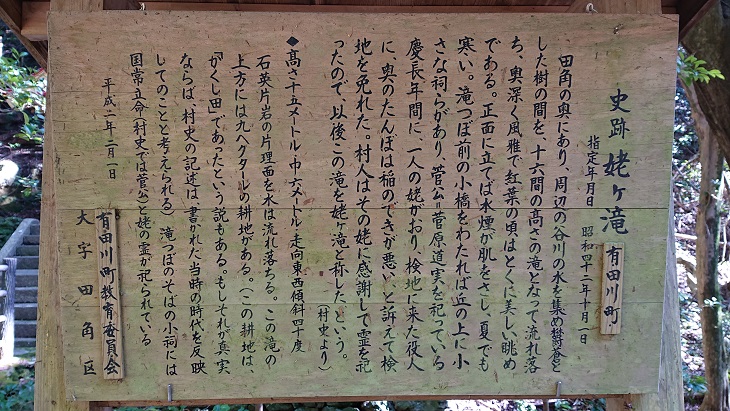 史跡 姥ヶ滝
有田川町
指定年月日 昭和四十二年十月一日
田角の奥にあり、周辺の谷川の水を集め鬱蒼と
した樹の間を、十六間の高さの滝となって流れ落
ち、奥深く風雅で紅葉の頃はとくに美しい眺め
である。正面に立てば水煙が肌をさし、夏でも
寒い。滝つぼ前の小橋をわたれば丘の上に小
さな祠らがあり、菅公、菅原道実を祀っている
慶長年間に、一人の姥がおり、検地に来た役人
に、奥のたんぼは稲のできが悪いと訴えて検
地を免れた。村人はその姥に感謝して霊を祀
ったので、以後この滝を姥ヶ滝と称した、という。
(村史より)
◆高さ十五メートル・巾六メートル・走向東西傾斜四十度
石英片岩の片理面を水は流れ落ちる。この滝の
上方には九ヘクタールの耕地がある。(この耕地は、
「かくし田」であったという説もある。もしそれが真実
ならば、村史の記述は、書かれた当時の時代を反映
してのことと考えられる)滝つぼのそばの小祠には
国常立命(村史では菅公)と姥の霊が祀られている
平成二年二月一日
有田川町教育委員会
大字田角区